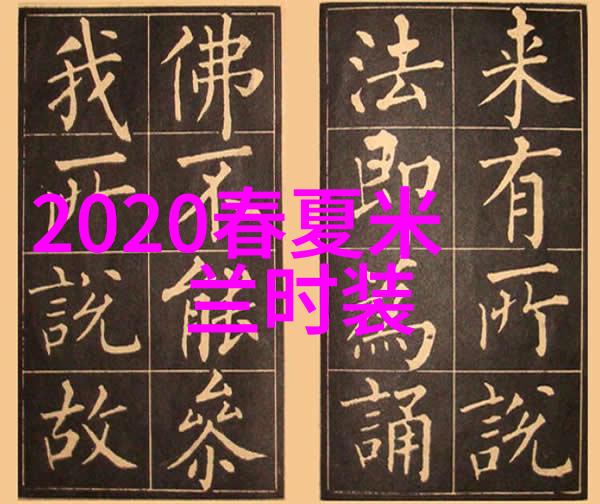 来有所說
法即為誦
佛不能叅
我所說故
2020春夏米
兰时装